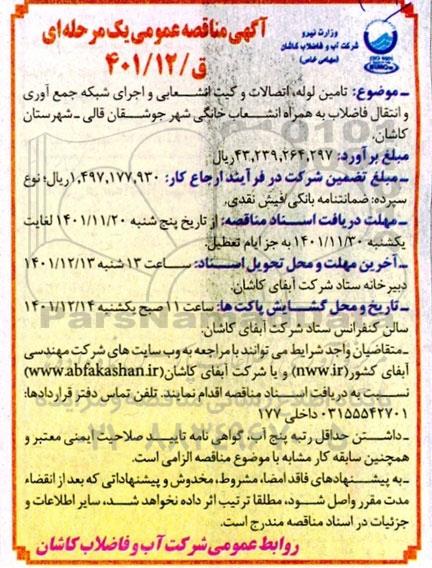 وزارت نیرو
شرکت آب و فاضلاب کاشان
(سهامی خاص)
آگهی مناقصه عمومی یک مرحله‌ای
ق/۴۰۱/۱۲
ـ موضوع: تامین لوله، اتصالات و کیت انشعابی و اجرای شبکه جمع آوری
و انتقال فاضلاب به همراه انشعاب خانگی شهر جوشقان قالی ـ شهرستان
کاشان.
مبلغ برآورد: ۴۳,۲۳۹,۲۶۴,۲۹۷ ریال
ـ مبلغ تضمین شرکت در فرآیند ارجاع کار: ۱,۴۹۷,۱۷۷,۹۳۰ ریال؛ نوع
سپرده: ضمانتنامه بانکی/فیش نقدی،
ـ مهلت دریافت اسناد مناقصه: از تاریخ پنج شنبه ۱۴۰۱/۱۱/۲۰ لغایت
یکشنبه ۱۴۰۱/۱۱/۳۰ به جز ایام تعطیل.
ـ آخرین مهلت و محل تحویل اسناد: ساعت ۱۳ شنبه ۱۴۰۱/۱۲/۱۳
دبیرخانه ستاد شرکت آبفای کاشان.
ـ تاریخ و محل گشایش پاکت ها: ساعت ۱۱ صبح یکشنبه ۱۴۰۱/۱۲/۱۴
سالن کنفرانس ستاد شرکت آبفای کاشان.
ـ متقاضیان واجد شرایط می توانند با مراجعه به وب سایت های شرکت مهندسی
آبفای کشور (nww.ir) و یا شرکت آبفای کاشان (www.abfakashan.ir)
نسبت به دریافت اسناد مناقصه اقدام نمایند. تلفن تماس دفتر قراردادها:
۰۳۱۵۵۵۴۲۷۰۱ داخلی ۱۷۷
ـ داشتن حداقل رتبه پنج آب، گواهی نامه تایید صلاحیت ایمنی معتبر و
همچنین سابقه کار مشابه با موضوع مناقصه الزامی است.
ـ به پیشنهادهای فاقد امضا، مشروط، مخدوش و پیشنهاداتی که بعد از انقضاء
مدت مقرر واصل شود، مطلقا ترتیب اثر داده نخواهد شد، سایر اطلاعات و
جزئیات در اسناد مناقصه مندرج است.
روابط عمومی شرکت آب و فاضلاب کاشان